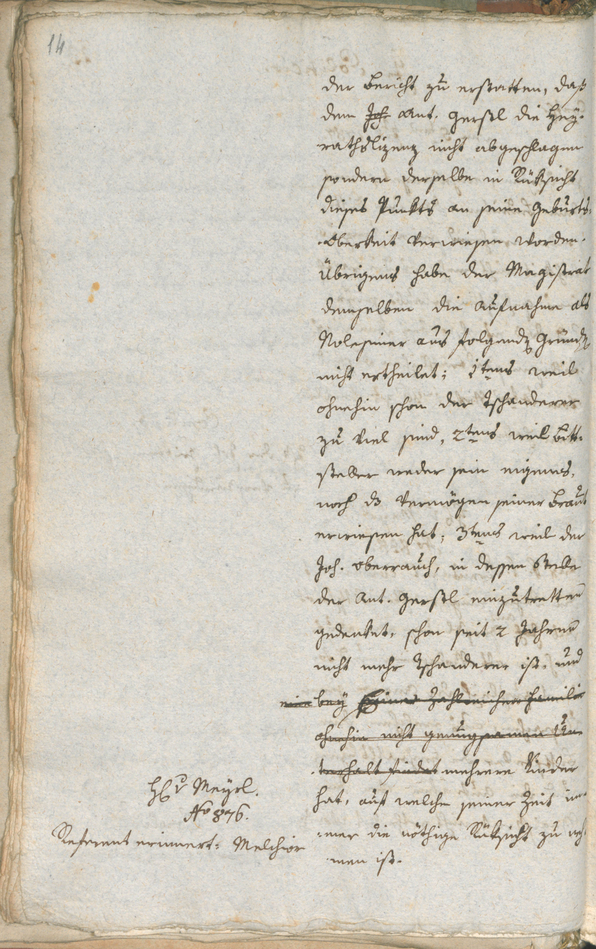 14
der Bericht zu erstatten, daß
dem Joh Ant. Gerstl die Hey-
rathslizenz nicht abgeschlagen
sondern derselbe in Rüksicht
dieses Punkts an seine Geburts-
Oberkeit verwiesen worden.
Übrigens habe der Magistrat
demselben die Aufnahme als
aus folgend. Gründ.
nicht ertheilet; 1tens weil
ohnehin schon der Tschanderer
zu viel sind, 2tens weil Bitt-
steller weder sein eigenes,
noch ds Vermögen seiner Braut
erwiesen hat; 3tens weil der
Joh. Oberrauch, in dessen Stelle
der Ant. Gerstl einzutretten
gedenket, schon seit 2 Jahren
nicht mehr Tschanderer ist, und
bey seiner zahlreichen Familie
ohnehin nicht genugsamen Un-
terhalt findet mehrere Kinder
hat, auf welche seiner Zeit im-
mer die nöthige Rüksicht zu neh-
men ist.
H. v Meyrl.
No 876.
Referent erinnert: Melchior